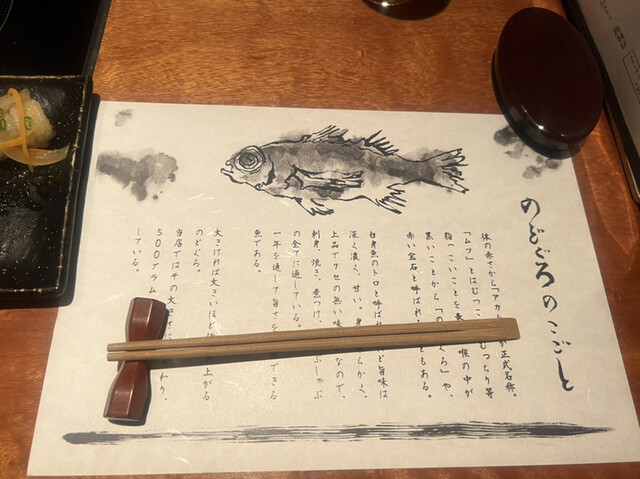 のどぐろのこごと
体の赤さから「アカ が正式名称。
「ムツ」とはむつこ むつちり等
脂っこいことを表 喉の中が
黒いことから「の ぐろ」や、
赤い宝石と呼ばれ ともある。
白身魚のトロと呼ばれ ほど旨味は
深く濃く、甘い。身 らかく、
上品でクセの無い味 なので、
刺身、焼き、煮つけ、 ぶしゃぶ
の全てに適している。
一年を通して旨さを できる
魚である。
大きければ大きいほど の上がる
のどぐろ。
当店ではその大きさに わり、
500グラム
している。